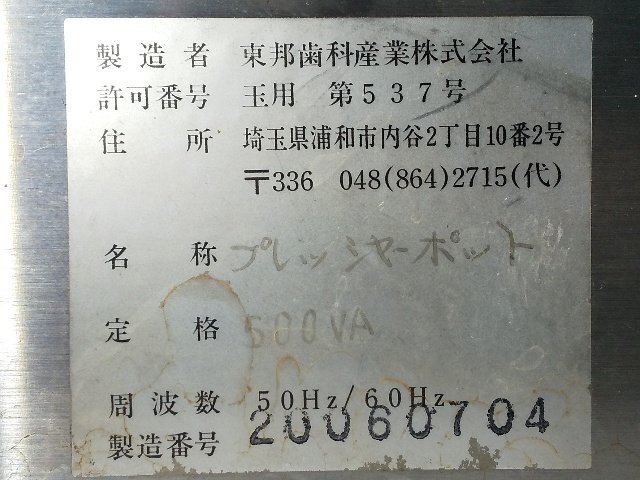 製造者 東邦歯科産業株式会社
許可番号 玉用 第537号
住所 埼玉県浦和市内谷2丁目10番2号
〒336 048(864)2715(代)
名称 プレッシャーポット
定格 500VA
周波数 50Hz/60Hz
製造番号 20060704